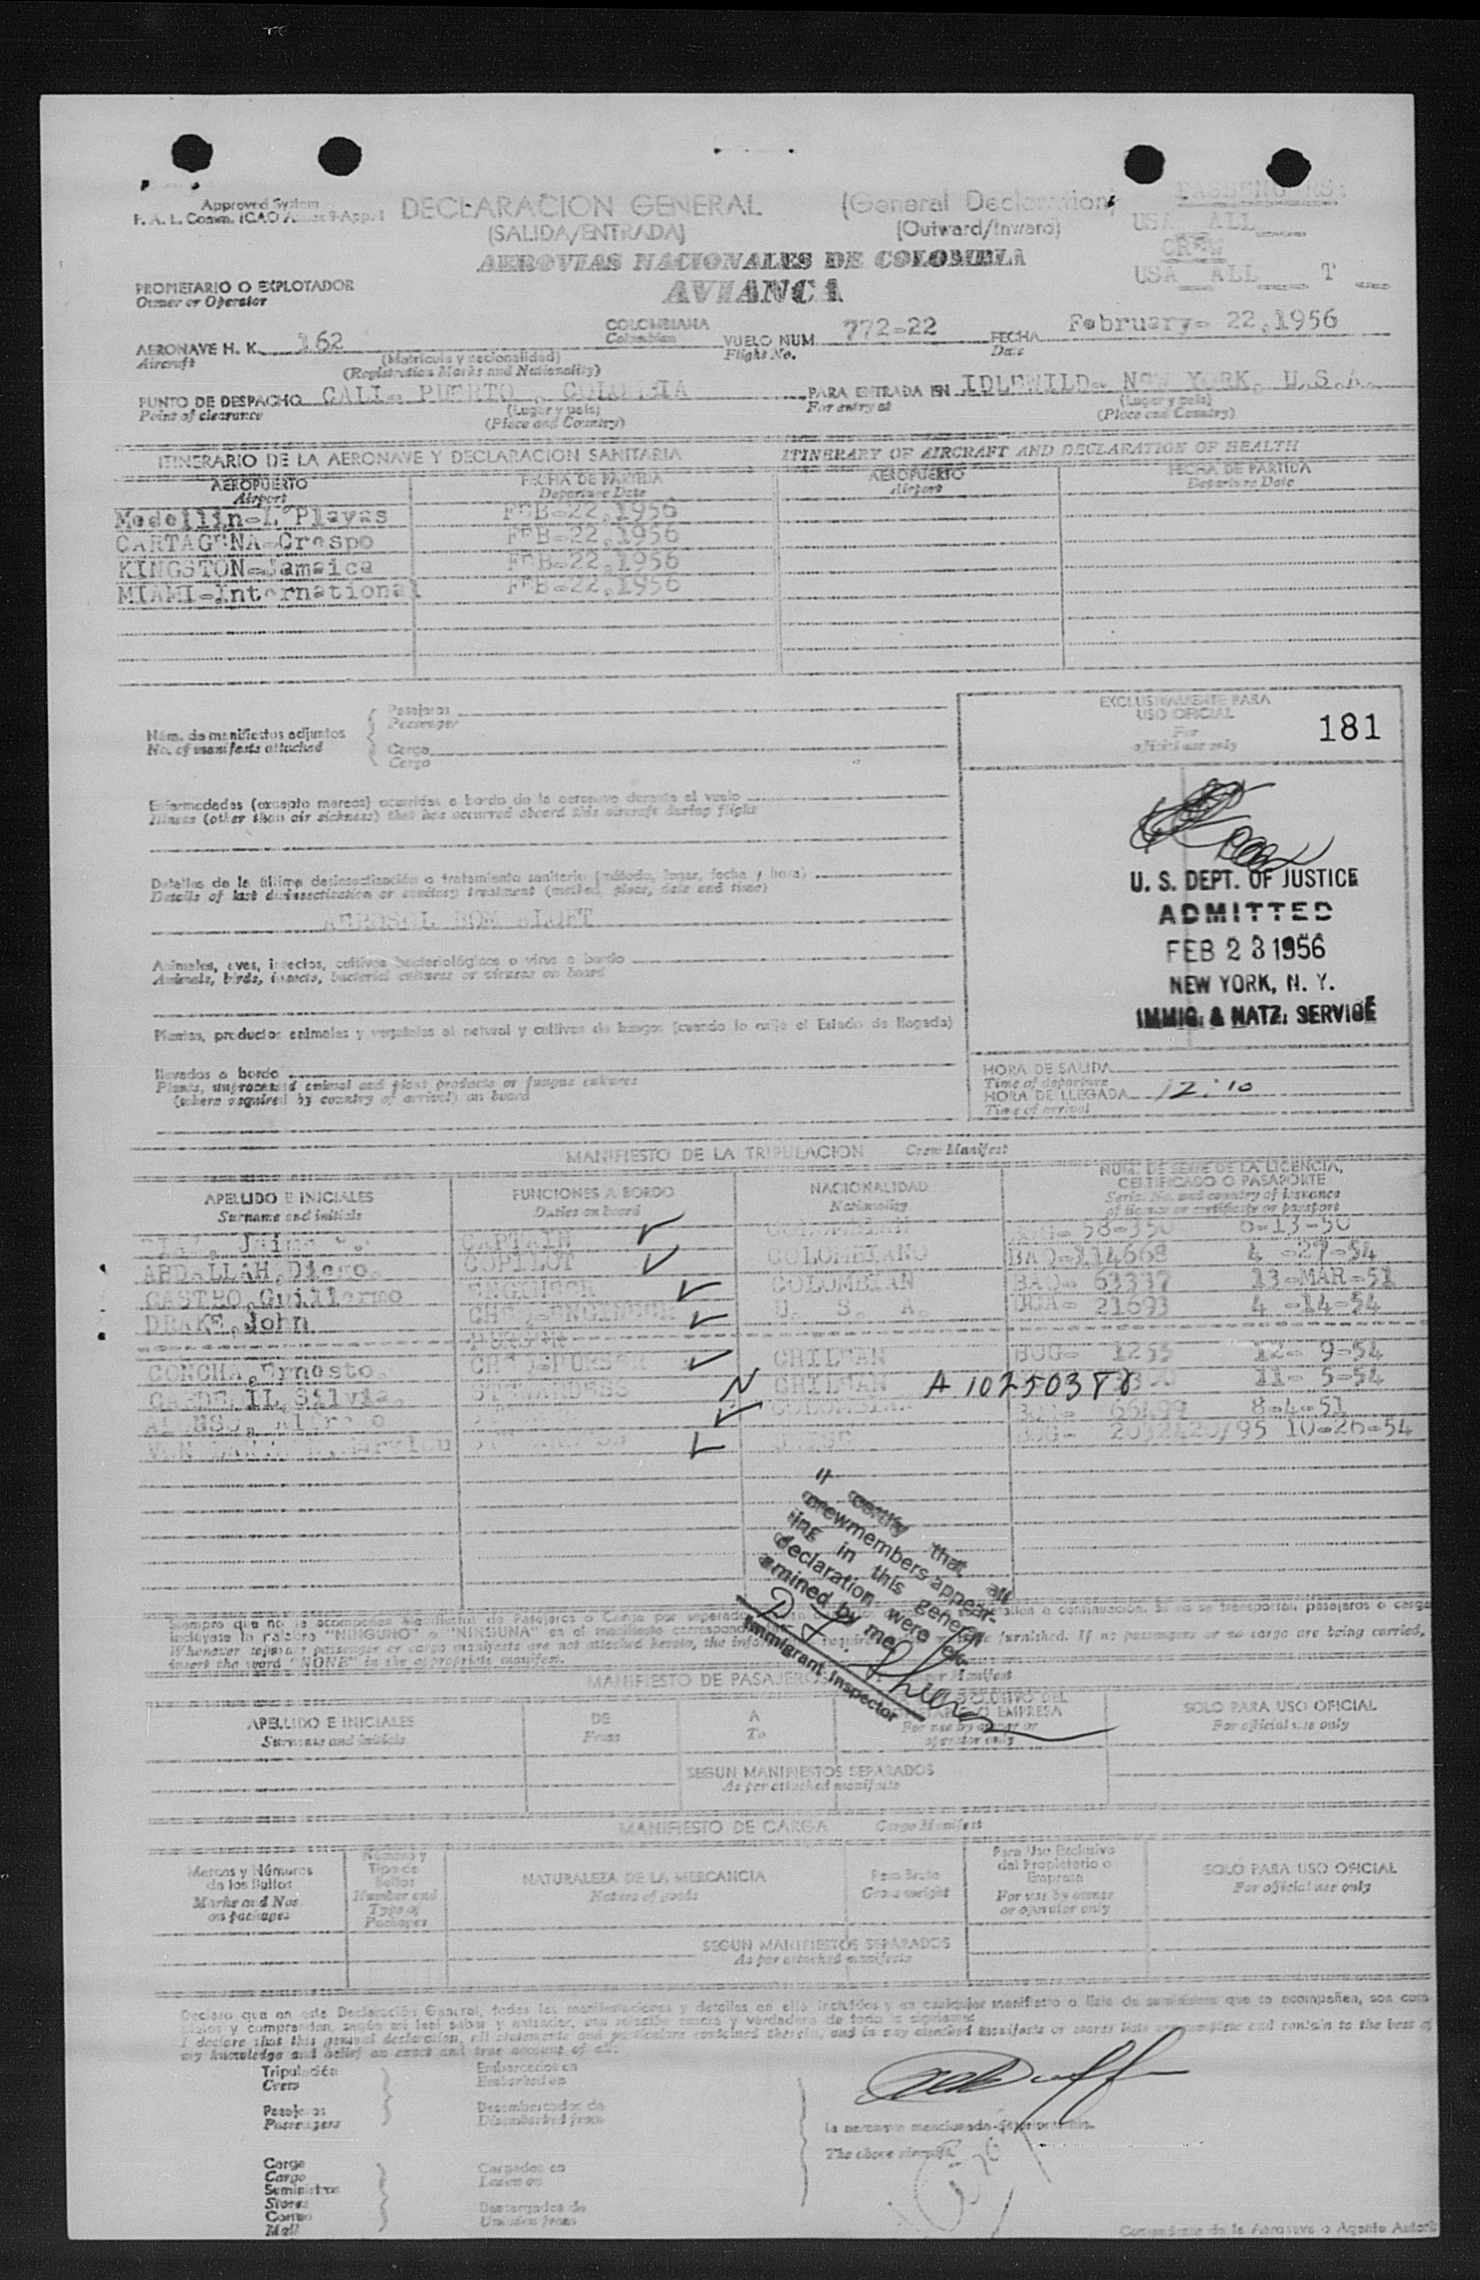 Approved System
F. A. L. Comm. ICAO
DECLARACION GENERAL
(General Declaration)
(SALIDA/ENTRADA)
(Outward/Inward)
PASSENGERS:
USA ALL
CREW
USA ALL T
AEROVIAS NACIONALES DE COLOMBIA
AVIANCA
PROPIETARIO O EXPLOTADOR
Owner or Operator
AERONAVE H. K. 162
Aircraft
(Matrícula y nacionalidad)
(Registration Marks and Nationality)
COLOMBIANA
Colombian
VUELO NUM 772-22
Flight No.
FECHA February- 22,1956
Date
PUNTO DE DESPACHO CALI- PUERTO , COLOMBIA
Point of clearance
(Lugar y país)
(Place and Country)
PARA ENTRADA EN IDLEWILD- NEW YORK, U.S.A.
For entry at
(Lugar y país)
(Place and Country)
ITINERARIO DE LA AERONAVE Y DECLARACION SANITARIA
ITINERARY OF AIRCRAFT AND DECLARATION OF HEALTH
AEROPUERTO
Airport
FECHA DE PARTIDA
Departure Date
AEROPUERTO
Airport
FECHA DE PARTIDA
Departure Date
Medellin-L Playas FEB-22,1956
CARTAGENA-Crespo FEB-22,1956
KINGSTON-Jamaica FEB-22,1956
MIAMI-International FEB-22,1956
Núm. de manifiestos adjuntos
No. of manifests attached
Pasajeros
Passenger
Carga
Cargo
EXCLUSIVAMENTE PARA
USO OFICIAL
For
official use only
181
Enfermedades (excepto mareos) ocurridas a bordo de la aeronave durante el vuelo
Illness (other than air sickness) that has occurred aboard this aircraft during flight
Detalles de la última desinsectización o tratamiento sanitario (método, lugar, fecha y hora)
Details of last disinsectization or sanitary treatment (method, place, date and time)
AEROSOL BOM ALOFT
Animales, aves, insectos, cultivos bacteriológicos o virus a bordo
Animals, birds, insects, bacterial cultures or viruses on board
Plantas, productos animales y vegetales al natural y cultivos de hongos (cuando lo exija el Estado de llegada)
llevados a bordo
Plants, unprocessed animal and plant products or fungus cultures
(where required by country of arrival) on board
U. S. DEPT. OF JUSTICE
ADMITTED
FEB 23 1956
NEW YORK, N. Y.
IMMIG. & NATZ. SERVICE
HORA DE SALIDA
Time of departure
HORA DE LLEGADA 12:10
Time of arrival
MANIFIESTO DE LA TRIPULACION Crew Manifest
APELLIDO E INICIALES
Surname and initials
FUNCIONES A BORDO
Duties on board
NACIONALIDAD
Nationality
NUM. DE SERIE DE LA LICENCIA,
CERTIFICADO O PASAPORTE
Serial No. and country of issuance
of license or certificate or passport
Jaime CAPTAIN COLOMBIAN 58-350 6-13-50
ABDALLAH, Diego COPILOT COLOMBIANO BAQ-114668 4 -27-54
CASTRO, Guillermo ENGINEER COLOMBIAN BAQ- 63337 13-MAR-51
DRAKE, John CHK-ENGINEER U. S. A. USA- 21693 4 -14-54
PURSER
CONCHA, Ernesto CHK-PURSER CHILEAN BOG- 1255 12- 9-54
Silvia STEWARDESS N CHILEAN A 10250378 11- 5-54
ALONSO, Alfredo COLOMBIAN 66499 8-4-51
BOG- 2032420/95 10-26-54
I certify that all
crewmembers appear-
ing in this general
declaration were ex-
amined by me
Immigrant Inspector
Siempre que no se acompañen Manifiestos de Pasajeros o Carga por separado
inclúyase la palabra "NINGUNO" o "NINGUNA" en el manifiesto
Whenever separate passenger or cargo manifests are not attached hereto, the furnished. If no passengers or no cargo are being carried,
insert the word "NONE" in the appropriate manifest.
MANIFIESTO DE PASAJEROS Manifest
APELLIDO E INICIALES
Surname and initials
DE
From
A
To
EMPRESA
For use by owner or
operator only
SOLO PARA USO OFICIAL
For official use only
SEGUN MANIFIESTOS SEPARADOS
As per attached manifests
MANIFIESTO DE CARGA Cargo Manifest
Marcas y Números
de los Bultos
Marks and Nos.
on packages
Número y
Tipo de
Bultos
Number and
Type of
Packages
NATURALEZA DE LA MERCANCIA
Nature of goods
Peso Bruto
Gross weight
Para Uso Exclusivo
del Propietario o
Empresa
For use by owner
or operator only
SOLO PARA USO OFICIAL
For official use only
SEGUN MANIFIESTOS SEPARADOS
As per attached manifests
Declaro que en esta Declaración General, todas las manifestaciones y detalles en ella incluidos y en cualquier manifiesto o lista de suministros que se acompañen, son com-
I declare that this general declaration, all statements and particulars contained therein, and in any attached manifests or stores lists are complete and contain to the best of
my knowledge and belief an exact and true account of all:
Tripulación
Crew
Pasajeros
Passengers
Embarcados en
Embarked on
Desembarcados de
Disembarked from
Carga
Cargo
Suministros
Stores
Correo
Mail
Cargados en
Laden on
Descargados de
Unladen from
la aeronave mencionada
The above aircraft.
Comandante de la Aeronave o Agente